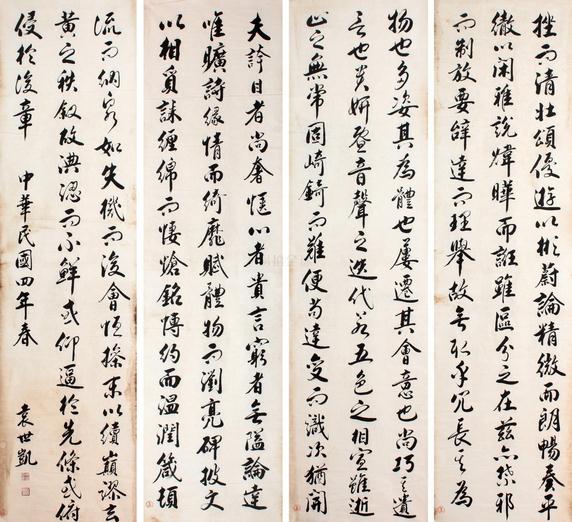 挫而清壯頌優遊以彬蔚論精微而朗暢奏平
徹以閑雅說煒曄而誑雖區分之在茲亦禁邪
而制放要辭達而理舉故無取乎冗長其為
物也多姿其為體也屢遷其會意也尚巧其遣
言也貴妍暨音聲之迭代若五色之相宣雖逝
止之無常固崎錡而難便苟達變而識次猶開
夫誇目者尚奢愜心者貴言窮者無隘論達
唯曠詩緣情而綺靡賦體物而瀏亮碑披文
以相質誄纏綿而悽愴銘博約而溫潤箴頓
流而納泉如失機而後會恆操末以續巔謬玄
黃之秩敘故淟涊而不鮮或仰逼於先條或俯
侵於後章 中華民國四年春
袁世凱